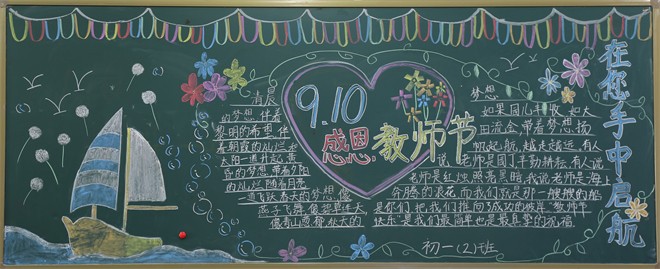 9.10
感恩教师节
在你手中启航
清晨
的梦想,伴着
黎明的希望,伴
着朝霞的灿烂,和
太阳一道升起,黄
昏的梦想,带着夕阳
的灿烂,随着月亮
一道飞跃.春天的梦想,像
燕子飞舞,夏
像青山葱郁,秋天的
梦想
如果园儿丰收,如大
田流金,带着梦想,扬
帆起航,越走越远.有人
说,老师是园丁,辛勤耕耘,有人说
老师是红烛,照亮黑暗.我说老师是海上
奔腾的浪花,而我们就是那一艘艘的船
是你们把我们推向了成功的彼岸."教师节
快乐"是我们最简单也是最真挚的祝福.
初一(2)班